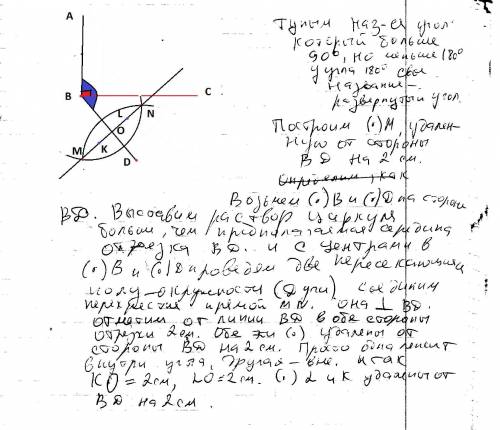 A
B
C
L
N
O
M
K
D
Тупым наз-ся угол
который больше
90°, но меньше 180°
у угла 180° свое
название -
развернутый угол.
Построим (.) М, удален-
ную от стороны
ВД на 2 см.
как
Возьмем (.) В и (.) Д на сторон
ВД. Выставим раствор циркуля
больше, чем предполагаемая середина
отрезка ВД. и с центрами в
(.) В и (.) Д проведем две пересекающиеся
полу-окружности (Дуги) соединим
перекрестия прямой MN. она ⊥ ВД.
отметим от линии ВД в обе стороны
отрезки 2 см. Обе эти (.) удалены от
стороны ВД на 2 см. Просто одна лежит
внутри угла, другая - вне. итак
KO = 2 см, LO = 2 см. (.) L и K удалены от
ВД на 2 см.